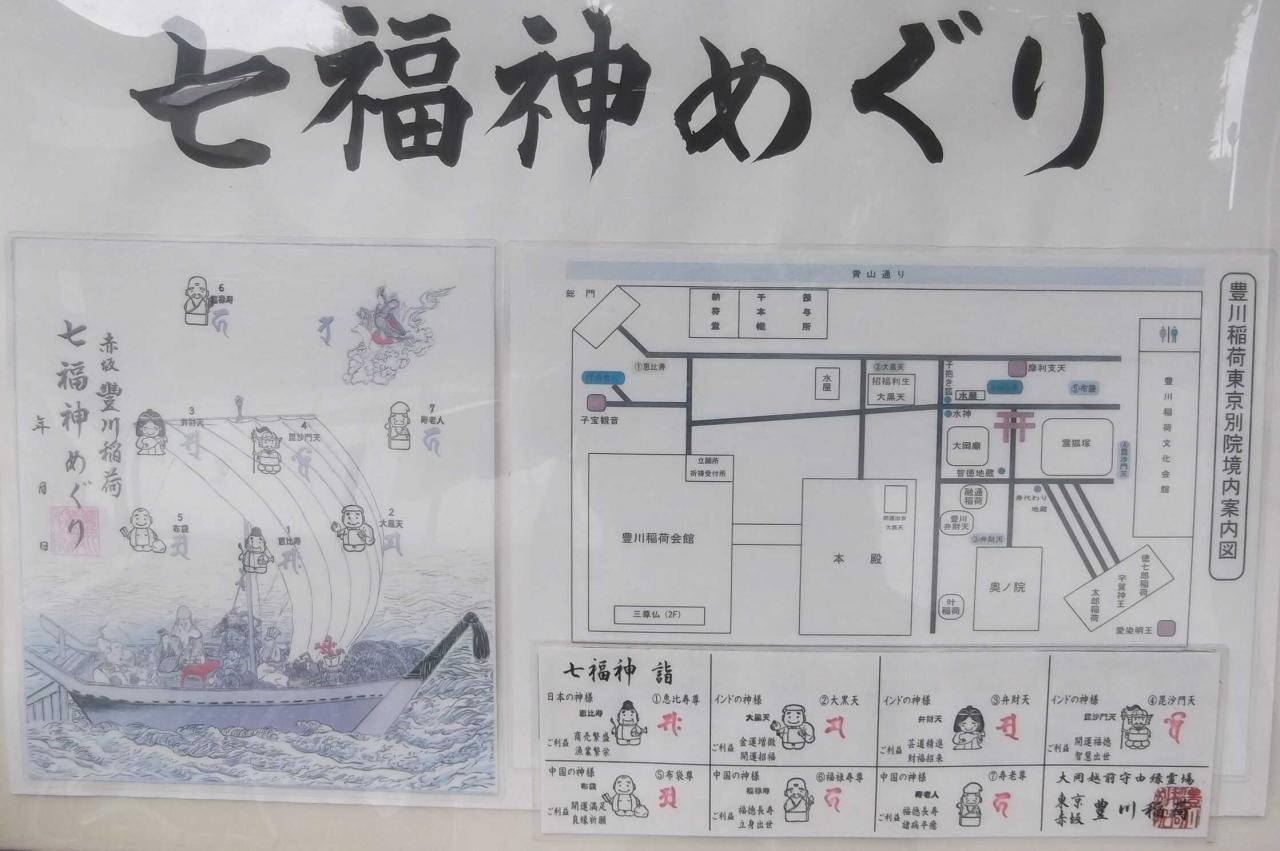 七福神めぐり
赤坂 豊川稲荷
七福神めぐり
年 月 日
6
福禄寿
3
弁財天
4
毘沙門天
7
寿老人
5
布袋
1
恵比寿
2
大黒天
豊川稲荷東京別院境内案内図
青山通り
総門
納符堂
千本幟
授与所
①恵比寿
子宝観音
水屋
②大黒天
招福利生
大黒天
子抱き狐
水屋
摩利支天
⑤布袋
水神
大岡廟
霊狐塚
④毘沙門天
智徳地蔵
融通
稲荷
身代わり
地蔵
豊川
弁財天
③弁財天
豊川稲荷文化会館
立願所
祈祷受付所
豊川稲荷会館
三尊仏(2F)
本殿
大黒天
奥ノ院
叶
稲荷
徳七郎稲荷
宇賀神王
太郎稲荷
愛染明王
七福神 詣
日本の神様 ①恵比寿尊
恵比寿
ご利益 商売繁盛
漁業繁栄
インドの神様 ②大黒天
大黒天
ご利益 金運増徽
開運招福
インドの神様 ③弁財天
弁財天
ご利益 芸道精進
財福招来
インドの神様 ④毘沙門天
毘沙門天
ご利益 開運福徳
智慧出世
中国の神様 ⑤布袋尊
布袋
ご利益 開運満足
良縁祈願
中国の神様 ⑥福禄寿尊
福禄寿
ご利益 福徳長寿
立身出世
中国の神様 ⑦寿老尊
寿老人
ご利益 福徳長寿
諸病平癒
大岡越前守由縁霊場
東京
赤坂 豊川稲荷